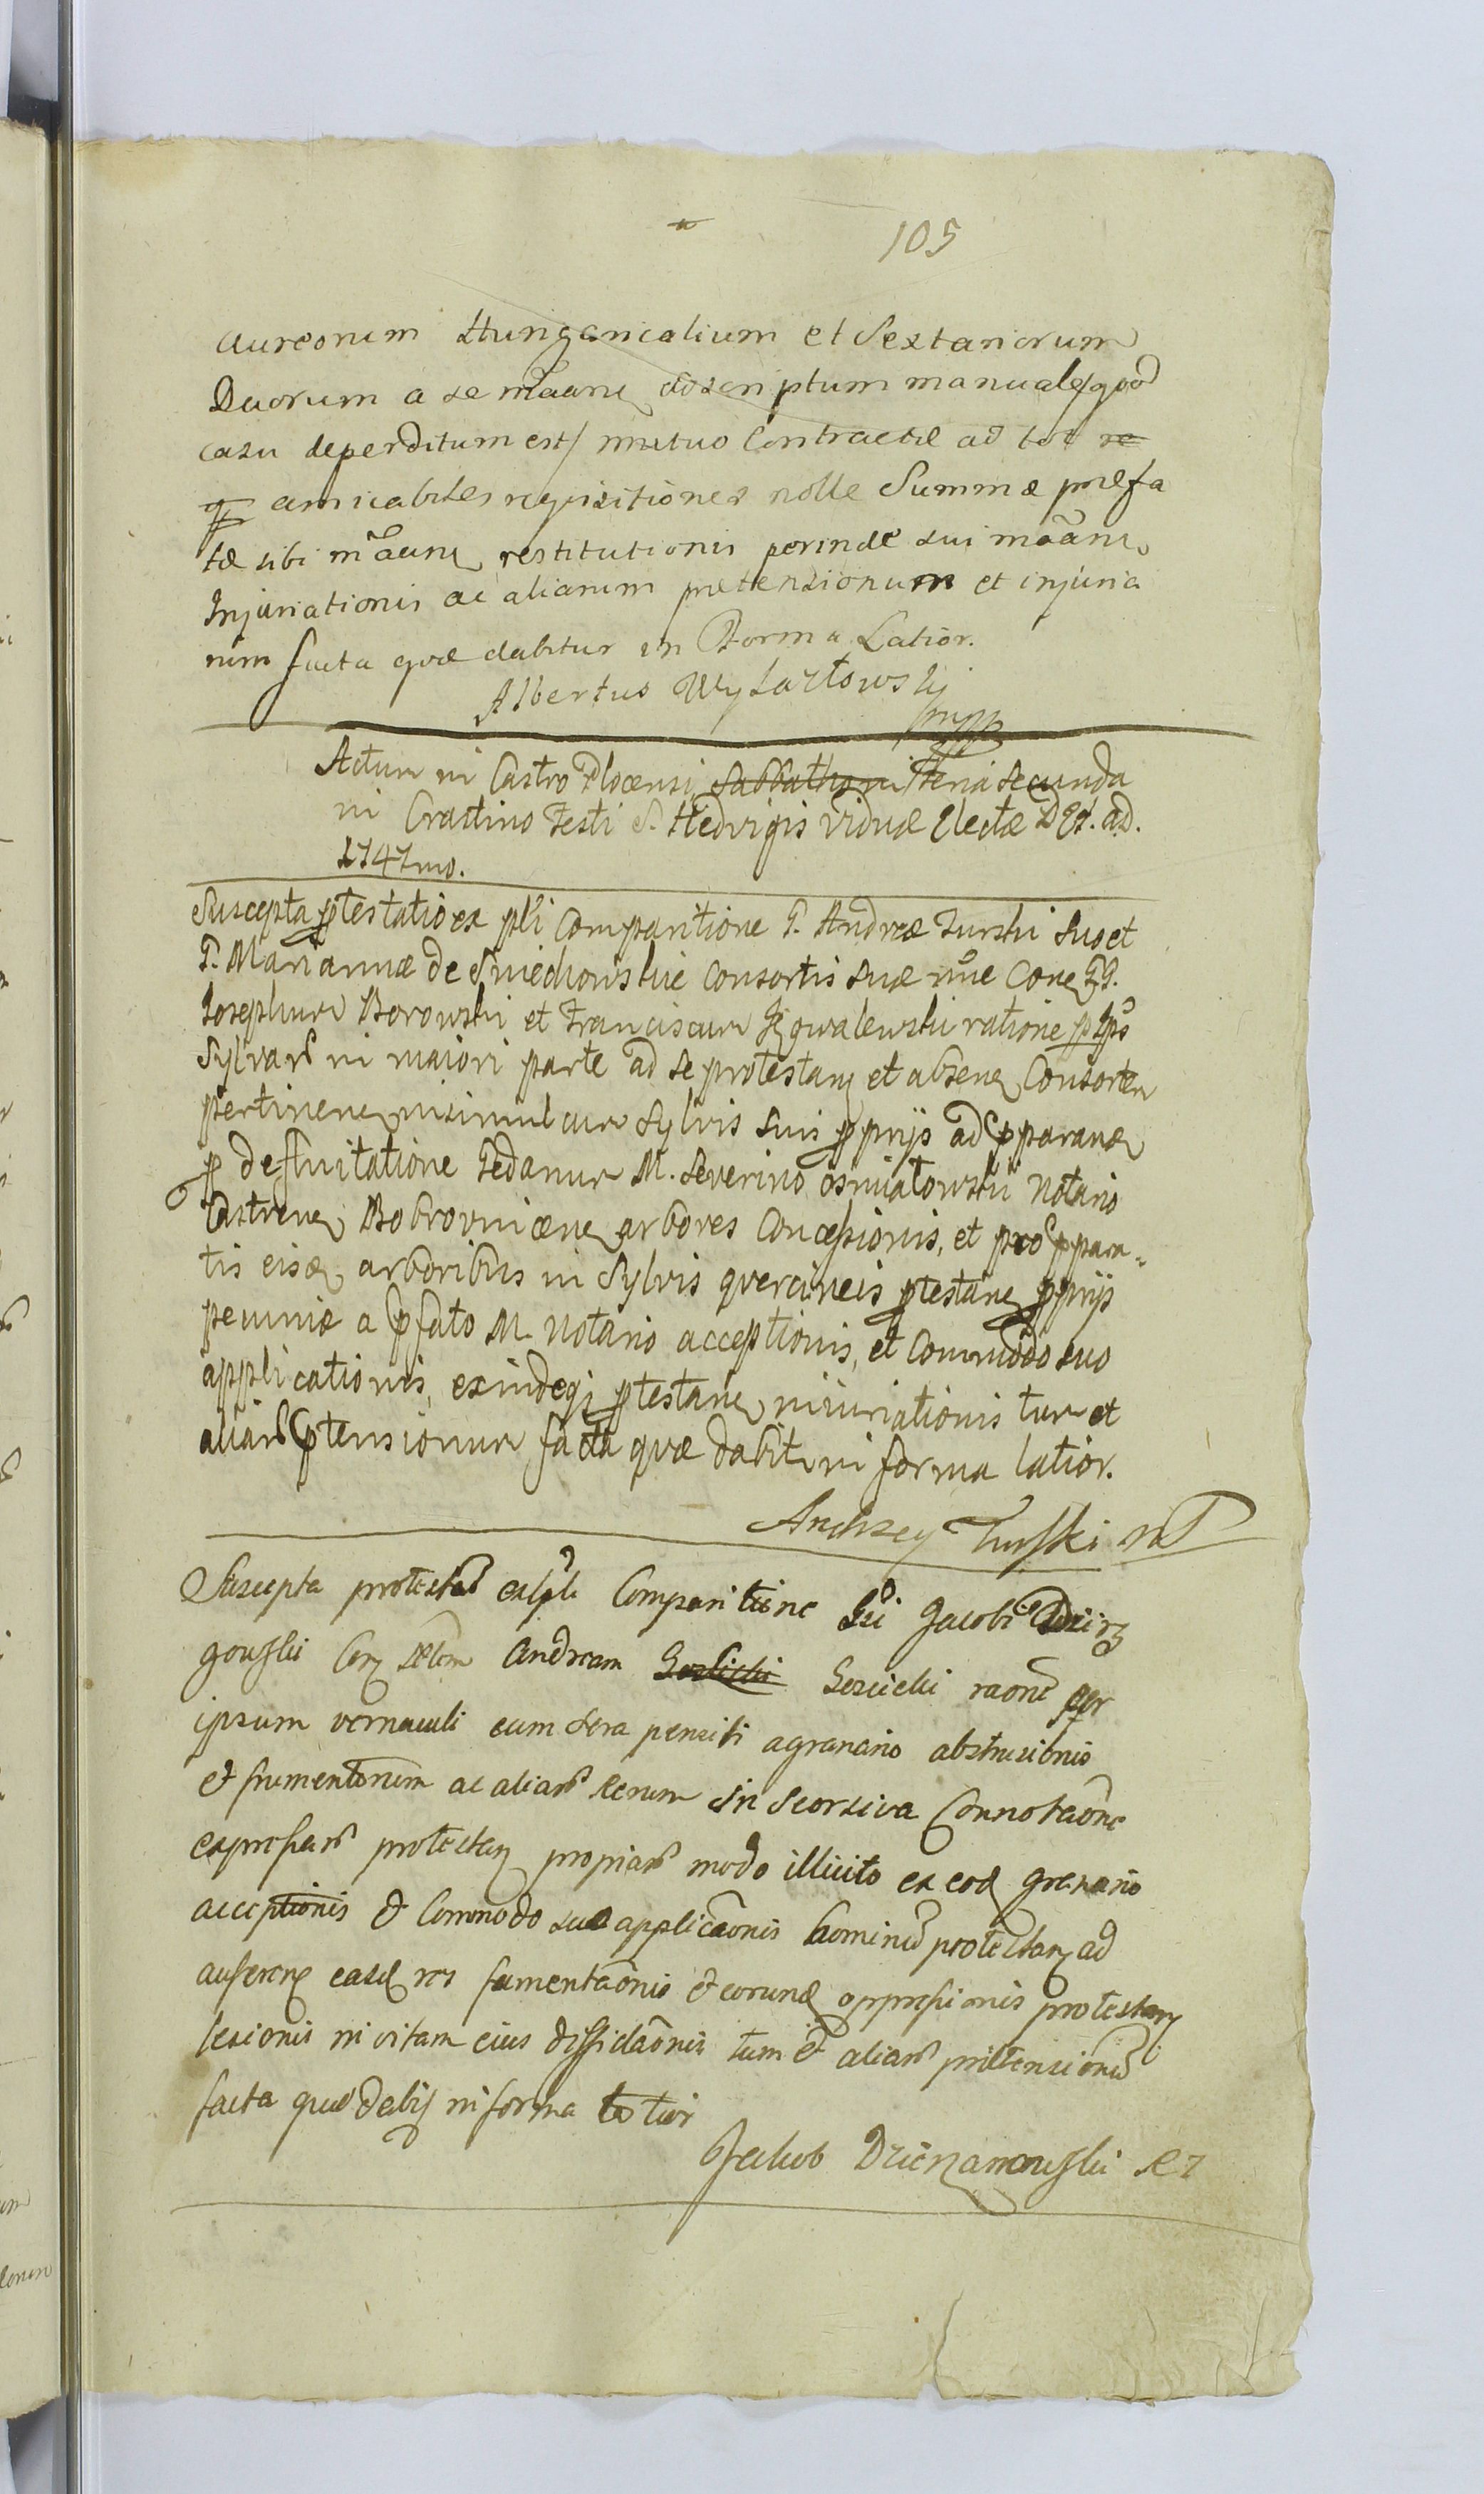 105
aureorum Hungaricalium et Sextariorum
Duorum a se mãane doscriptum manuale/qvod
casu deperditum est/ mutuo Contractæ ad tot re
amicabiles reqvisitiones nolle Summæ præfa
tæ sibi mãane restitutionis perinde sui mãane
Injuriationis ac aliarum prætensionum et injuria
rum facta qvæ dabitur in Forma Latior.
Albertus Wylazłowski
mpp
Actum in Castro Plocensi Sabbatho in Feria secunda
in Crastino Festi S. Hedvigis Viduæ Electæ ad.
1747mo.
Suscepta ptestatio ex pli Comparitione G. Andreæ Turski suo et
G. Mariannæ de Sniechowskie Consortis suæ nne Cone GG.
Iosephum Borowski et Franciscum Zgowalewski ratione p Ips
Sylvar in maiori parte ad se protestan et absene Consortem
pertinene insimul cum Sylvis suis pprijs ad pparand
p defluitatione Gedanum M. Severino Osmiałowski Notario
Castrene Bobrovnicene arbores Concessionis, et pro ppara-
tis eisd arboribus in Sylvis qvercineis ptestane pprijs
pecuniæ a pfato M. Notario acceptionis, et Commodo suo
applicationis, exindeqz ptestane iniuriationis tum et
aliar ptensionum facta qvæ dabit in forma latior.
Andrzey Turski mp
Suscepta protestaō ex pli Comparitione Gsi Jacobi Dzierz
gowski Con Andream Gozlicki Gozicki raone per
ipsum vernaculi cum sera pensili a granario abstrusionis
et frumentorum ac aliar Rerum in Seorsiva Connotaōne
expressar protestan propriar modo illicito ex eod granario
acceptionis et Commodo suo applicaōnis hominū protestan ad
auferene easd res et eorund oppressionis protestan
lesionis in vitam eius diffidaōnis tum et aliar prætensionū
facta quæ dabit in forma latior
Jakub Dzierzanowski